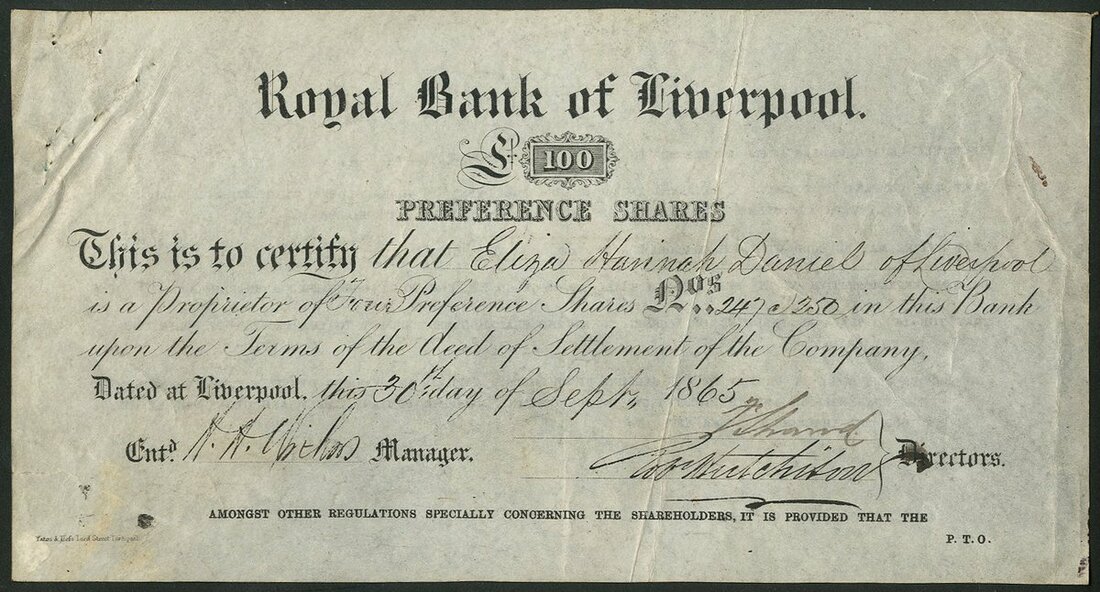 Royal Bank of Liverpool.
£ 100
PREFERENCE SHARES
This is to certify that Eliza Hannah Daniel of Liverpool
is a Proprietor of Four Preference Shares Nos .. 247 @ 250 in this Bank
upon the Terms of the deed of Settlement of the Company.
Dated at Liverpool, this 30th day of Sept. 1865
F Shand
Entd. Manager. Hutchison Directors.
AMONGST OTHER REGULATIONS SPECIALLY CONCERNING THE SHAREHOLDERS, IT IS PROVIDED THAT THE
Yates & Hess Lord Street Liverpool
P. T. O.